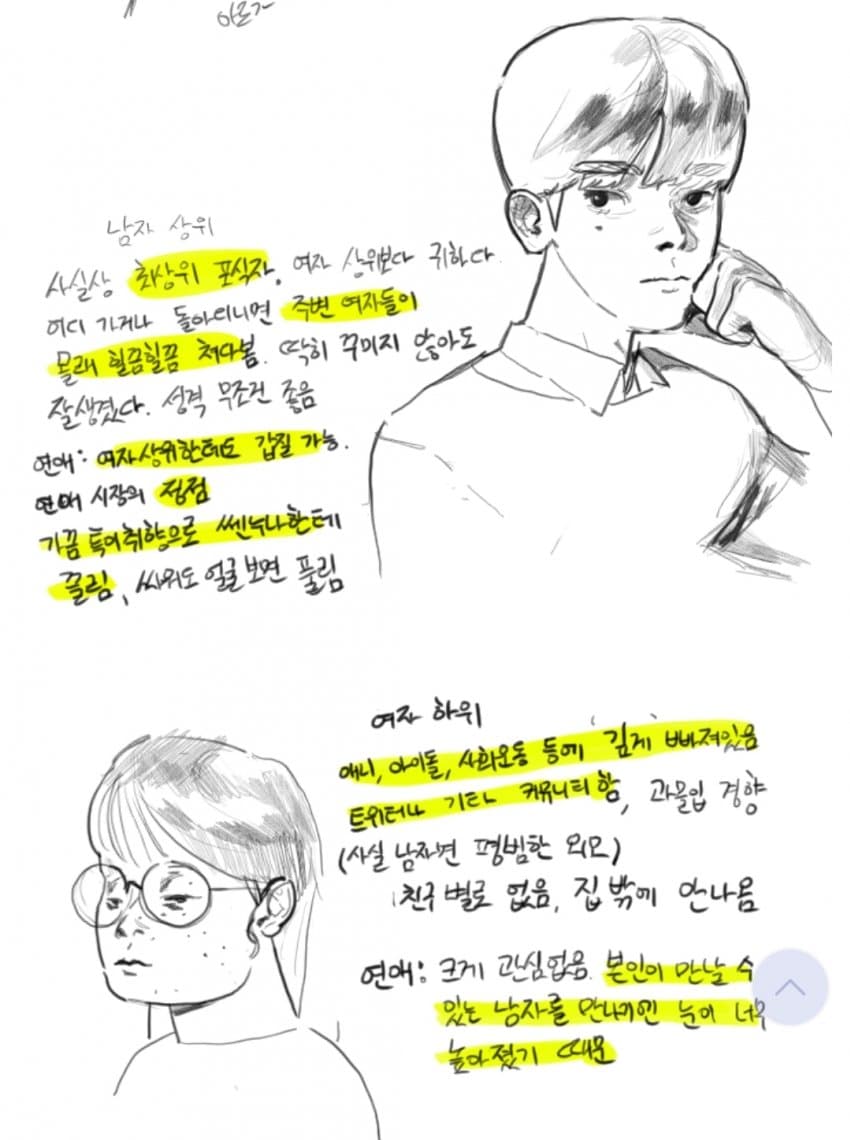 남자 상위
사실상 최상위 포식자. 여자 상위보다 귀하다.
어디 가거나 돌아다니면 주변 여자들이
몰래 힐끔힐끔 쳐다봄. 딱히 꾸미지 않아도
잘생겼다. 성격 무조건 좋음
연애: 여자상위한테도 갑질 가능.
연애 시장의 정점
가끔 특이취향으로 쎈누나한테
끌림, 싸워도 얼굴보면 풀림
여자 하위
애니, 아이돌, 사회운동 등에 '깊게' 빠져있음
트위터나 기타 커뮤니티 함, 과몰입 경향
(사실 남자면 평범한 외모)
친구 별로 없음, 집 밖에 안나옴
연애: 크게 관심없음. 본인이 만날 수
있는 남자를 만나기엔 눈이 너무
높아졌기 때문